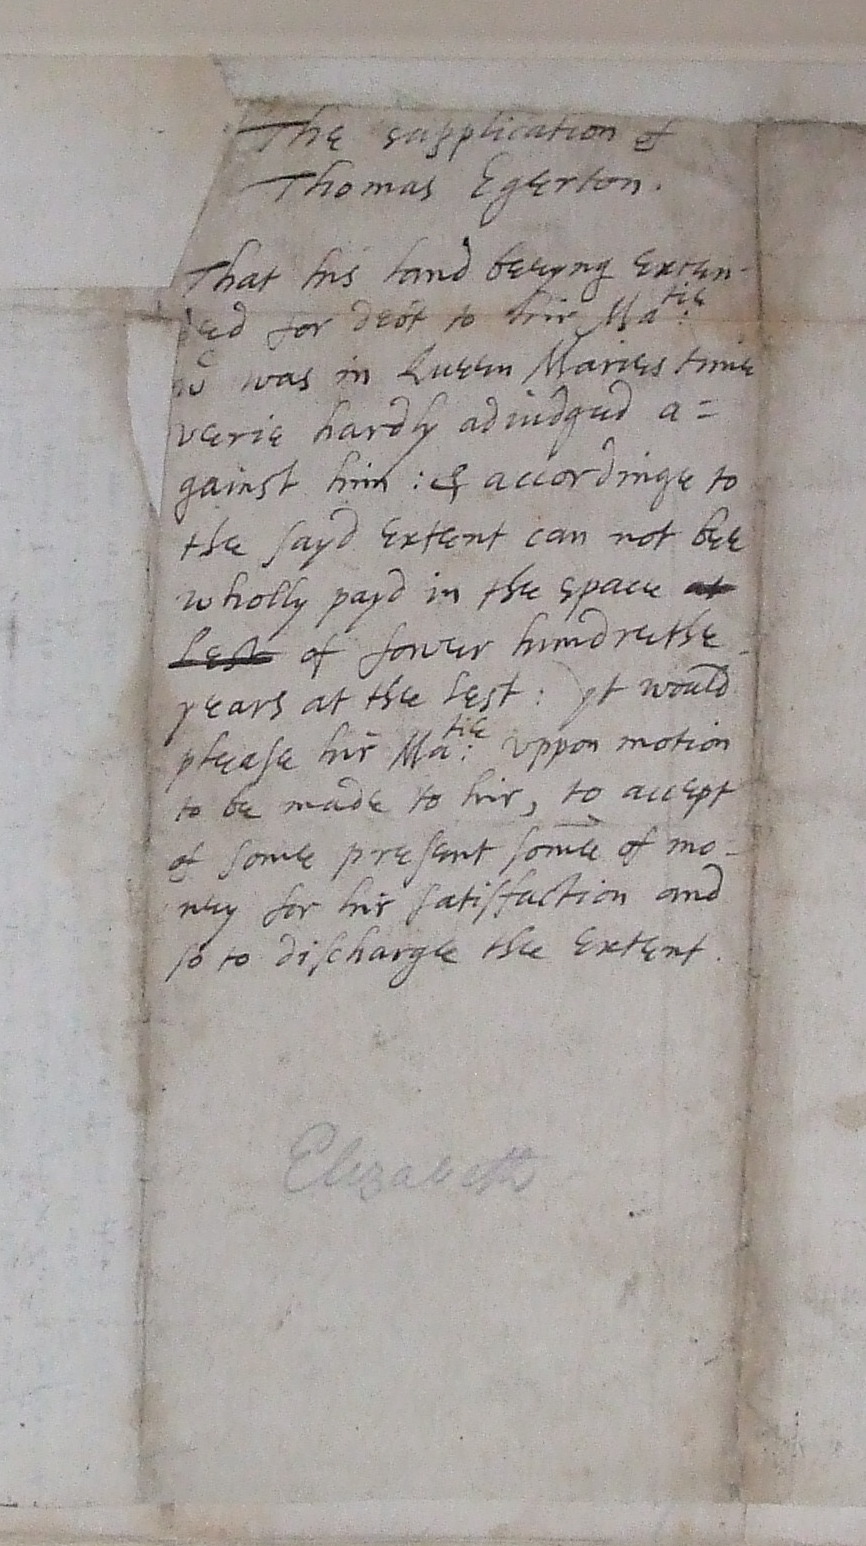 The supplication of
Thomas Egerton.
That his land beeyng exten-
ded for debt to hir Ma:tie
wc was in Queen Maries time
verie hardly adiudged a=
gainst him : & accordinge to
the sayd extent can not bee
wholly payd in the space at
lest of fower hundrethe
years at the lest : yt would
please hir Ma:tie vppon motion
to be made to hir, to accept
of some present some of mo-
ney for hir satisfaction and
so to discharge the extent.
Elizabeth